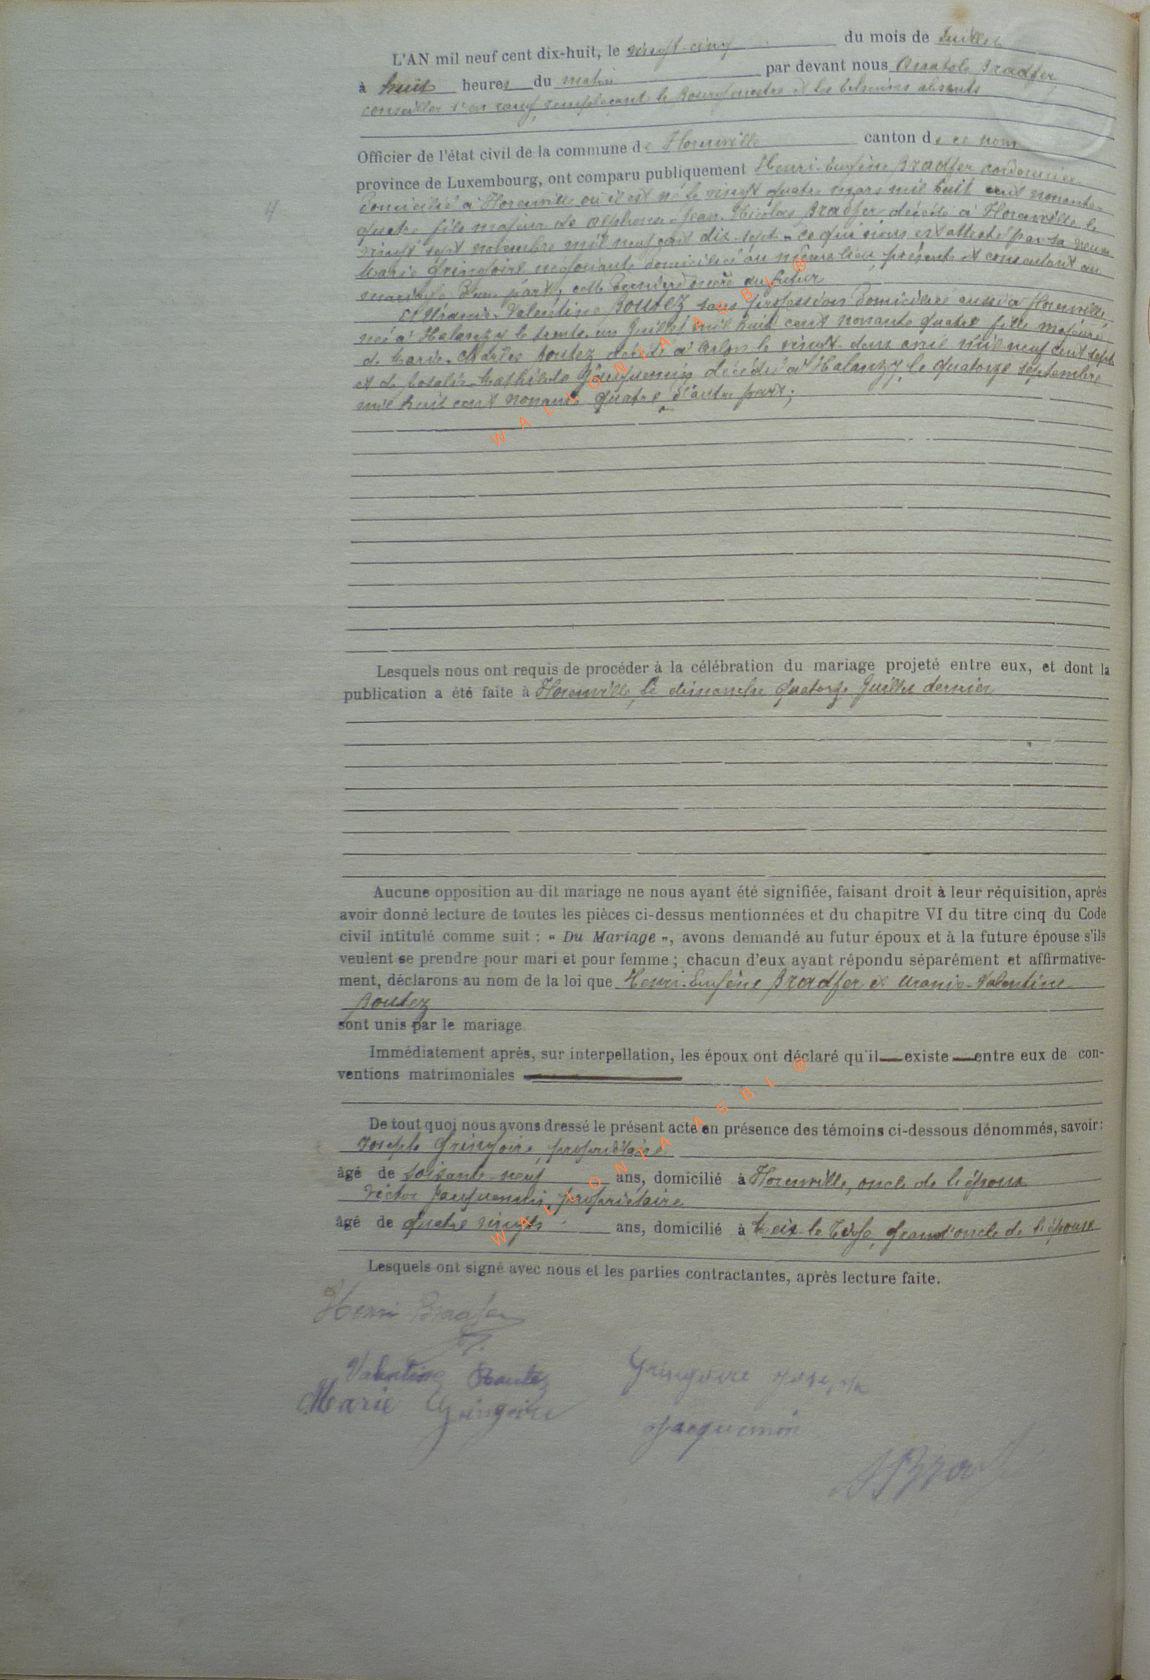 L'AN mil neuf cent dix-huit, le vingt-cinq du mois de Juillet
à huit heures du matin par devant nous Anatole Bradfer
conseiller remplaçant le Bourgmestre et les Echevins absents
Officier de l'état civil de la commune de Florenville canton de ce nom
province de Luxembourg, ont comparu publiquement Henri-Eugène Bradfer cordonnier
4
domicilié à Florenville où il est né le vingt quatre mars mil huit cent nonante-
quatre fils majeur de Alphonse-Jean-Nicolas Bradfer décédé à Florenville le
vingt sept novembre mil neuf cent dix-sept - ce qui nous est attesté par sa veuve
Marie Gringoire négociante domiciliée au même lieu, présente et consentant au
mariage d'une part, cette dernière mère du futur
Et Uranie-Valentine Boutez sans profession domiciliée aussi à Florenville
née à Halanzy le trente un Juillet mil huit cent nonante quatre fille majeure
de Marie-Charles Boutez décédé à Arlon le vingt deux avril mil neuf cent sept
et de Rosalie Mathilde Jacquemin décédée à Halanzy le quatorze septembre
mil huit cent nonante quatre d'autre part;
Lesquels nous ont requis de procéder à la célébration du mariage projeté entre eux, et dont la
publication a été faite à Florenville, le dimanche quatorze Juillet dernier
Aucune opposition au dit mariage ne nous ayant été signifiée, faisant droit à leur réquisition, après
avoir donné lecture de toutes les pièces ci-dessus mentionnées et du chapitre VI du titre cinq du Code
civil intitulé comme suit : « Du Mariage », avons demandé au futur époux et à la future épouse s'ils
veulent se prendre pour mari et pour femme ; chacun d'eux ayant répondu séparément et affirmative-
ment, déclarons au nom de la loi que Henri-Eugène Bradfer et Uranie-Valentine
Boutez
sont unis par le mariage
Immédiatement après, sur interpellation, les époux ont déclaré qu'il existe entre eux de con-
ventions matrimoniales
De tout quoi nous avons dressé le présent acte en présence des témoins ci-dessous dénommés, savoir:
Joseph Gringoire, propriétaire
âgé de soixante neuf ans, domicilié à Florenville, oncle de l'époux
Victor Jacquemin, propriétaire
âgé de quatre vingts ans, domicilié à Meix-le-Tige, grand'oncle de l'épouse
Lesquels ont signé avec nous et les parties contractantes, après lecture faite.
Henri Bradfer
Valentine Boutez
Gringoire Joseph
Marie Gringoire
Jacquemin
WALLONIA ASBL ©
WALLONIA ASBL ©